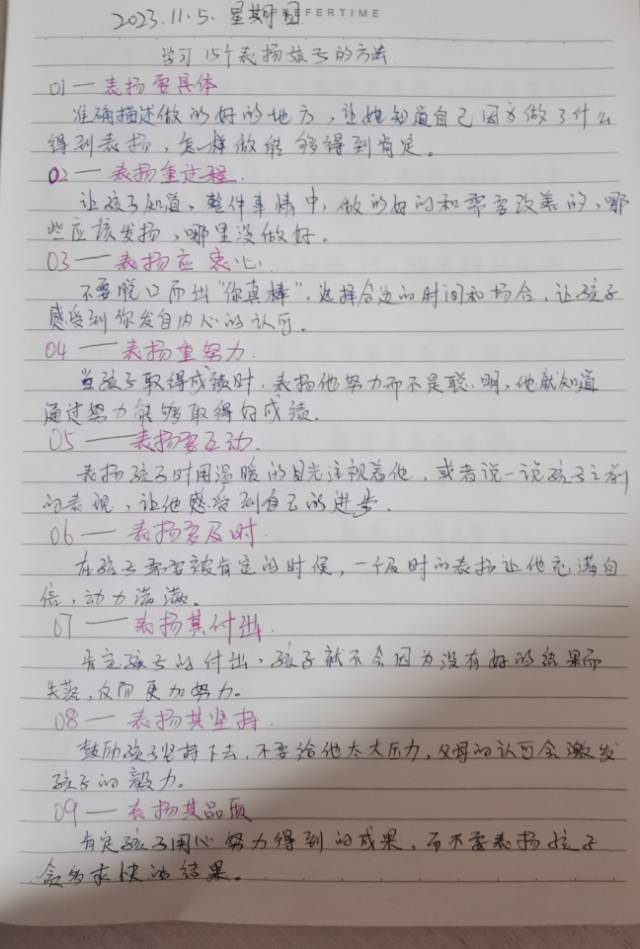 FERTIME
2023.11.5. 星期日
学习15个表扬孩子的方法
01一表扬要具体
准确描述做的好的地方，让她知道自己因为做了什么
得到表扬，怎样做能够得到肯定。
02一表扬重过程.
让孩子知道，整件事情中，做的好的和需要改善的，哪
些应该发扬，哪里没做好。
03一表扬应衷心
不要脱口而出“你真棒”.选择合适的时间和场合，让孩子
感受到你发自内心的认可.
04一表扬重努力.
当孩子取得成绩时.表扬他努力而不是聪明，他就知道
通过努力能够取得好成绩.
05一表扬要互动.
表扬孩子时用温暖的目光注视着他，或者说一说孩子之前
的表现，让他感受到自己的进步.
06一表扬要及时.
在孩子需要被肯定的时候，一个及时的表扬让他充满自
信，动力满满.
07一表扬其付出.
肯定孩子的付出，孩子就不会因为没有好的结果而
失落，反而更加努力。
08一表扬其坚持
鼓励孩子坚持下去，不要给他太大压力，父母的认可会激发
孩子的毅力。
09一表扬其品质
肯定孩子用心努力得到的成果，而不要表扬孩子
贪多求快的结果。